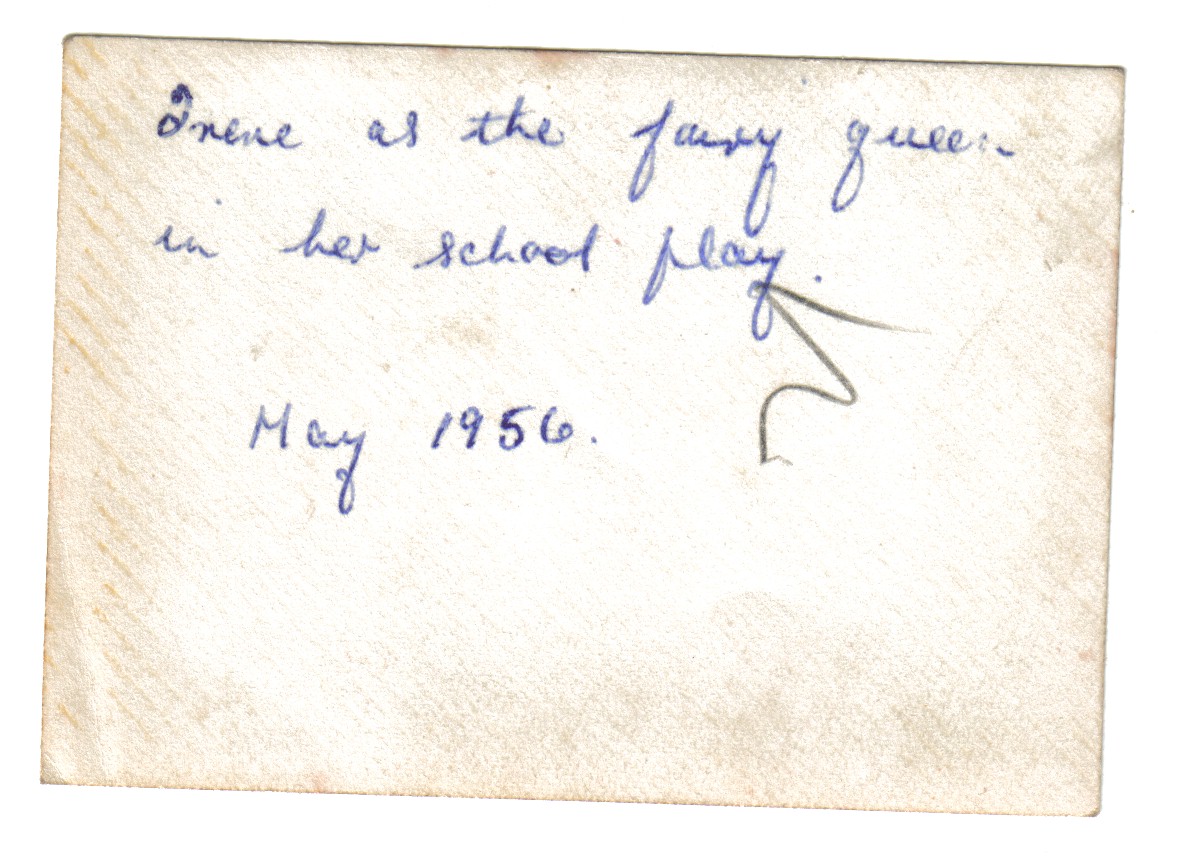 Irene as the fairy queen
in her school play.
May 1956.